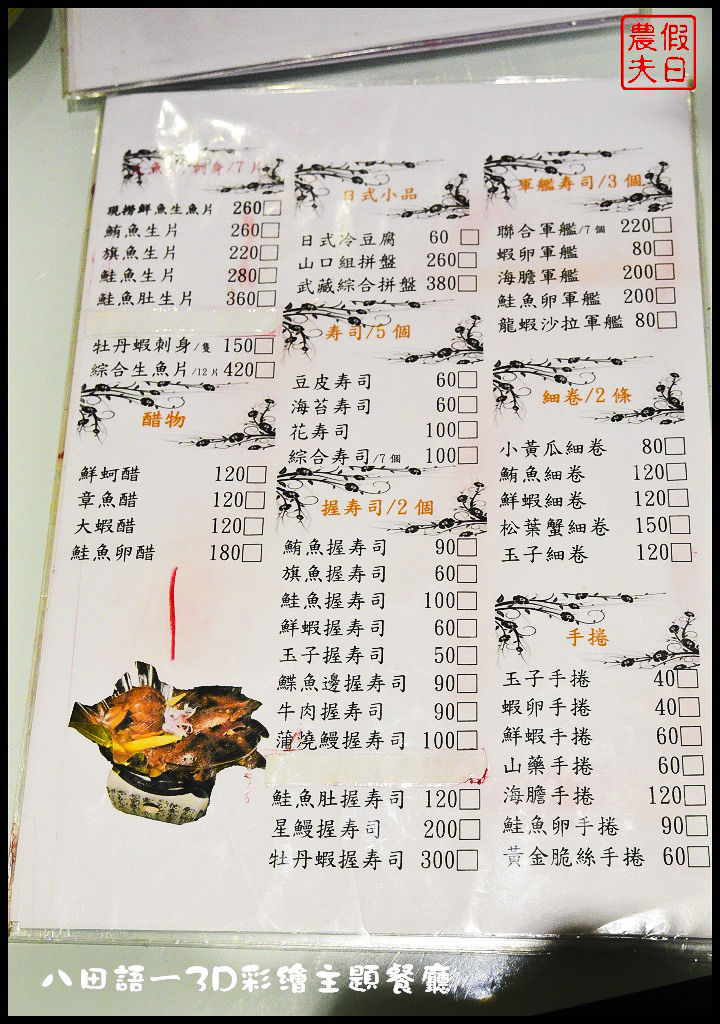 農假
夫日
魚 刺身/7片
現撈鮮魚生魚片 260
鮪魚生片 260
旗魚生片 220
鮭魚生片 280
鮭魚肚生片 360
牡丹蝦刺身/隻 150
綜合生魚片/12片 420
醋物
鮮蚵醋 120
章魚醋 120
大蝦醋 120
鮭魚卵醋 180
日式小品
日式冷豆腐 60
山口組拼盤 260
武藏綜合拼盤 380
寿司/5個
豆皮寿司 60
海苔寿司 60
花寿司 100
綜合寿司/7個 100
握寿司/2個
鮪魚握寿司 90
旗魚握寿司 60
鮭魚握寿司 100
鮮蝦握寿司 60
玉子握寿司 50
鰈魚邊握寿司 90
牛肉握寿司 90
蒲燒鰻握寿司 100
鮭魚肚握寿司 120
星鰻握寿司 200
牡丹蝦握寿司 300
軍艦寿司/3個
聯合軍艦/7個 220
蝦卵軍艦 80
海膽軍艦 200
鮭魚卵軍艦 200
龍蝦沙拉軍艦 80
細卷/2條
小黃瓜細卷 80
鮪魚細卷 120
鮮蝦細卷 120
松葉蟹細卷 150
玉子細卷 120
手捲
玉子手捲 40
蝦卵手捲 40
鮮蝦手捲 60
山藥手捲 60
海膽手捲 120
鮭魚卵手捲 90
黃金脆絲手捲 60
八田語一3D彩繪主題餐廳